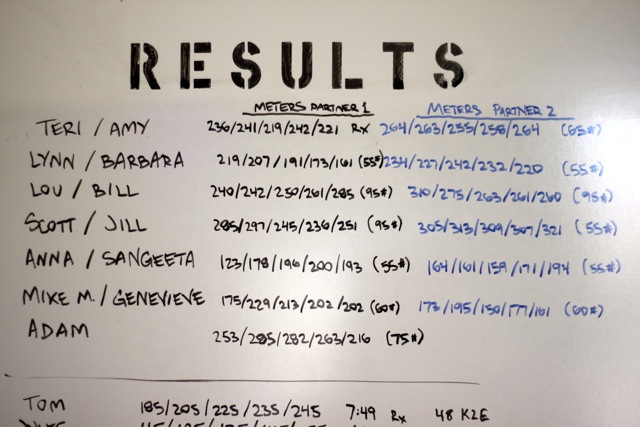 RESULTS
METERS PARTNER 1 METERS PARTNER 2
TERI / AMY 236/241/219/242/221 Rx 264/263/255/258/264 (65#)
LYNN / BARBARA 219/207/191/173/161 (55#) 234/227/242/232/220 (55#)
LOU / BILL 240/242/250/261/285 (95#) 310/275/263/261/260 (95#)
SCOTT / JILL 285/297/245/236/251 (95#) 305/313/309/307/321 (55#)
ANNA / SANGEETA 123/178/196/200/193 (55#) 164/161/159/171/194 (55#)
MIKE M. / GENEVIEVE 175/229/213/202/202 (60#) 173/195/150/177/161 (60#)
ADAM 253/285/282/263/216 (75#)
TOM 185/205/225/235/245 7:49 Rx 48 K2E